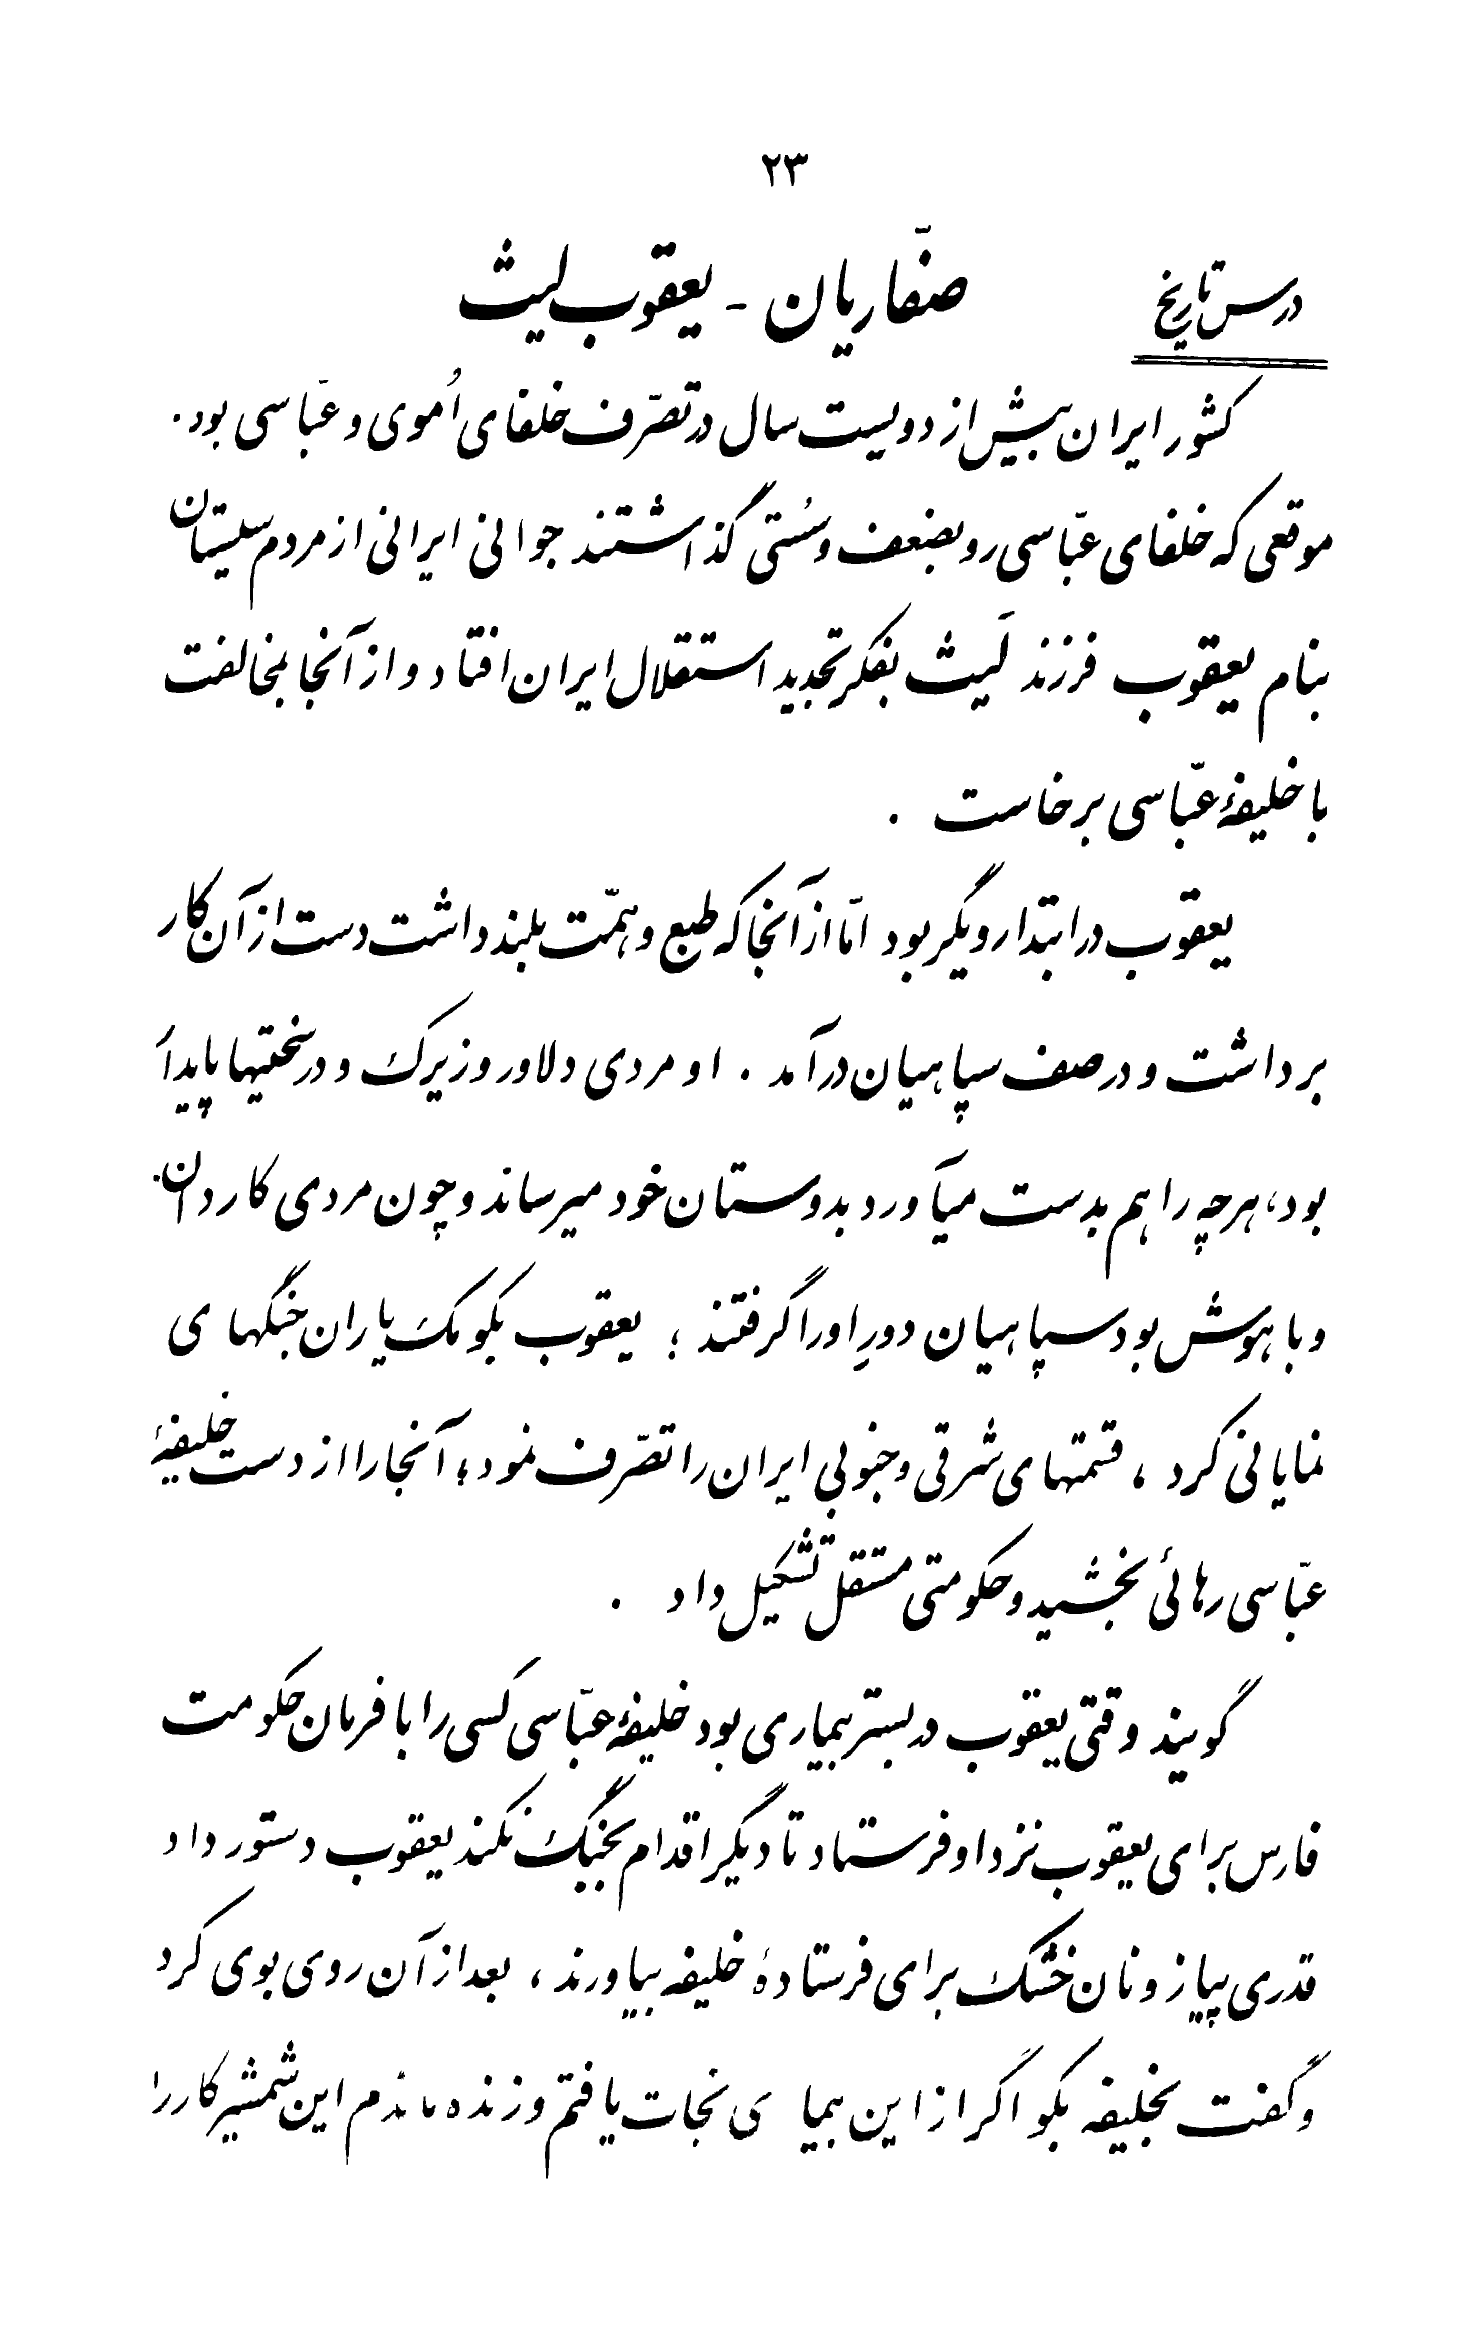 ۲۳
درس تاریخ
صفّاریان - یعقوب لیث
کشور ایران بیش از دویست سال در تصرّف خلفای اُموی و عبّاسی بود.
موقعی که خلفای عبّاسی رو بضعف و سُستی گذاشتند جوانی ایرانی از مردم سیستان
بنام یعقوب فرزند لَیث بفکر تجدید استقلال ایران افتاد و از آنجا بمخالفت
با خلیفهٔ عبّاسی برخاست .
یعقوب در ابتدا رویگر بود امّا از آنجا که طبع و همّت بلند داشت دست از آن کار
برداشت و در صف سپاهیان درآمد . او مردی دلاور و زیرک و در سختیها پایدار
بود، هرچه را هم بدست میآورد بدوستان خود میرساند و چون مردی کاردان
و با هوش بود سپاهیان دورِ او را گرفتند ؛ یعقوب بکومک یاران جنگهای
نمایانی کرد ، قسمتهای شرقی و جنوبی ایران را تصرّف نمود ؛ آنجا را از دست خلیفهٔ
عبّاسی رهائی بخشید و حکومتی مستقل تشکیل داد .
گویند وقتی یعقوب در بستر بیماری بود خلیفهٔ عبّاسی کسی را با فرمان حکومت
فارس برای یعقوب نزد او فرستاد تا دیگر اقدام بجنگ نکند یعقوب دستور داد
قدری پیاز و نان خشک برای فرستادهٔ خلیفه بیاورند ، بعد از آن روی بوی کرد
و گفت بخلیفه بگو اگر از این بیما ی نجات یافتم و زنده ماندم این شمشیر کار را